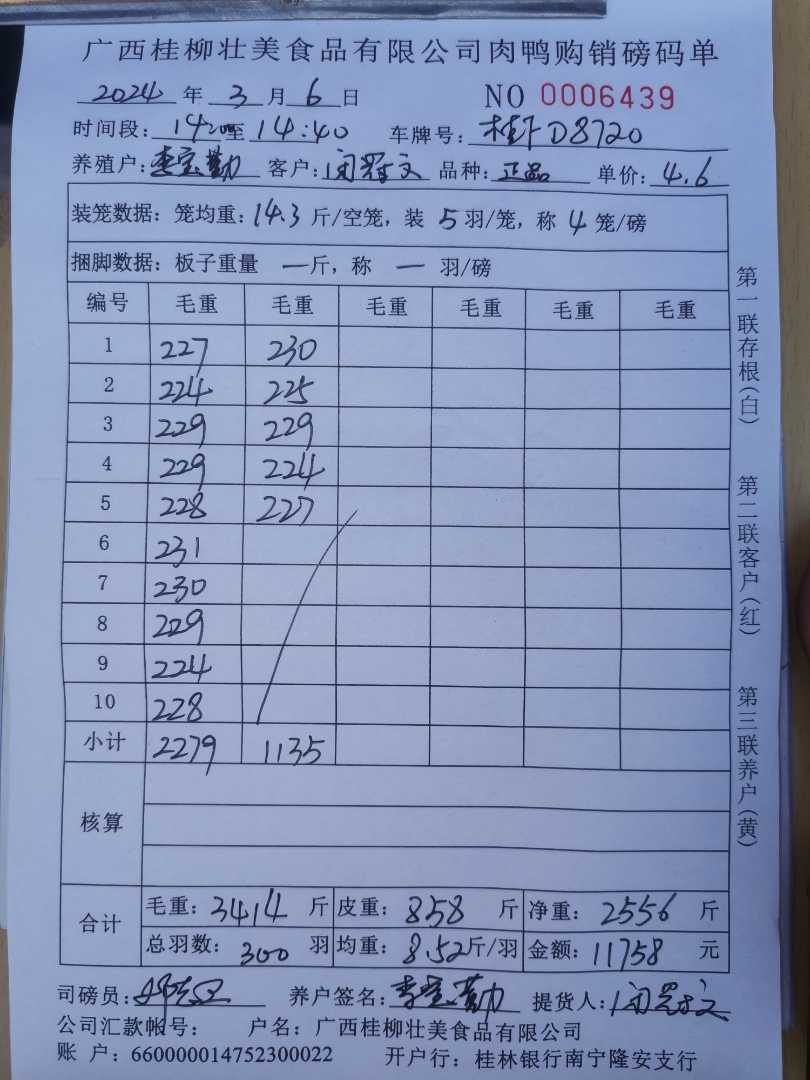 广西桂柳壮美食品有限公司肉鸭购销磅码单
2024 年 3 月 6 日 NO 0006439
时间段: 14:20至 14:40 车牌号: 桂FD8720
养殖户: 李宝勤 客户: 闭冠文 品种: 正品 单价: 4.6
装笼数据: 笼均重: 14.3 斤/空笼, 装 5 羽/笼, 称 4 笼/磅
捆脚数据: 板子重量 一斤, 称 一 羽/磅
编号 毛重 毛重 毛重 毛重 毛重 毛重
1 227 230
2 224 225
3 229 229
4 229 224
5 228 227
6 231
7 230
8 229
9 224
10 228
小计 2279 1135
核算
合计 毛重: 3414 斤 皮重: 858 斤 净重: 2556 斤
总羽数: 300 羽 均重: 8.52斤/羽 金额: 11758 元
司磅员: 养户签名: 李宝勤 提货人: 闭冠文
公司汇款帐号: 户名: 广西桂柳壮美食品有限公司
账 户: 660000014752300022 开户行: 桂林银行南宁隆安支行
第一联存根(白)
第二联客户(红)
第三联养户(黄)